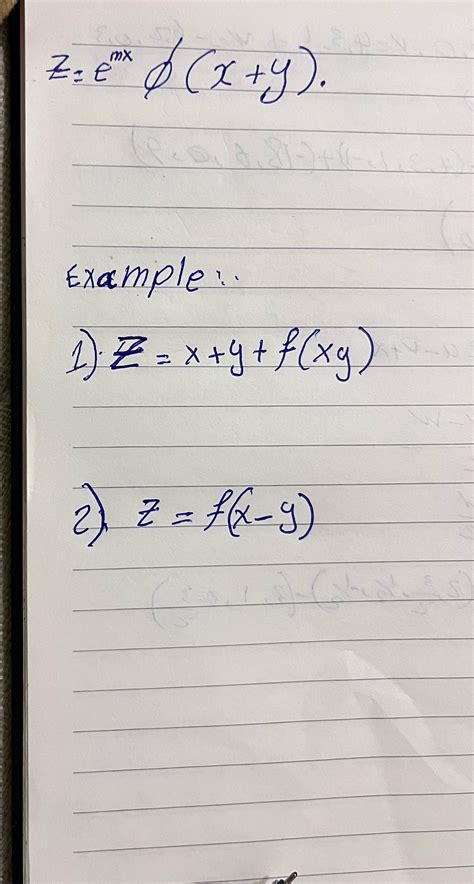 z = e^mx ϕ (x+y).
Example:.
1). Z = x+y+f(xy)
2). z = f(x-y)